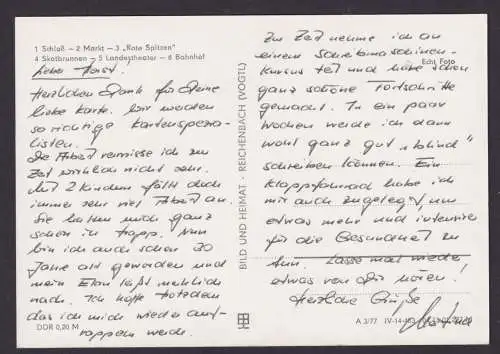 1 Schloß – 2 Markt – 3 „Rote Spitzen"
4 Skatbrunnen – 5 Landestheater – 6 Bahnhof
Lieber Horst!
Herzlichen Dank für Deine
liebe Karte. Wir werden
so richtige Kartenspezia-
listen.
Die Arbeit vermisse ich zur
Zeit wirklich nicht sehr.
Mit 2 Kindern fällt doch
immer sehr viel Arbeit an.
Sie halten mich ganz
schön in trapp. Nun
bin ich auch schon 30
Jahre alt geworden und
mein Elan läßt merklich
nach. Ich hoffe trotzdem
das ich mich wieder auf-
rappeln werde.
DDR 0,20 M
BILD UND HEIMAT · REICHENBACH (VOGTL)
Zur Zeit nehme ich an
einem Schreibmaschinen-
Echt Foto
Kursus teil und habe schon
ganz schöne Fortschritte
gemacht. In ein paar
Wochen werde ich dann
wohl ganz gut „blind"
schreiben können. Ein
Klappfahrrad habe ich
mir auch zugelegt um
etwas mehr und intensiver
für die Gesundheit zu
tun. Lasse mal wieder
etwas von Dir hören!
Herzliche Grüße
A 3/77 IV-14-483